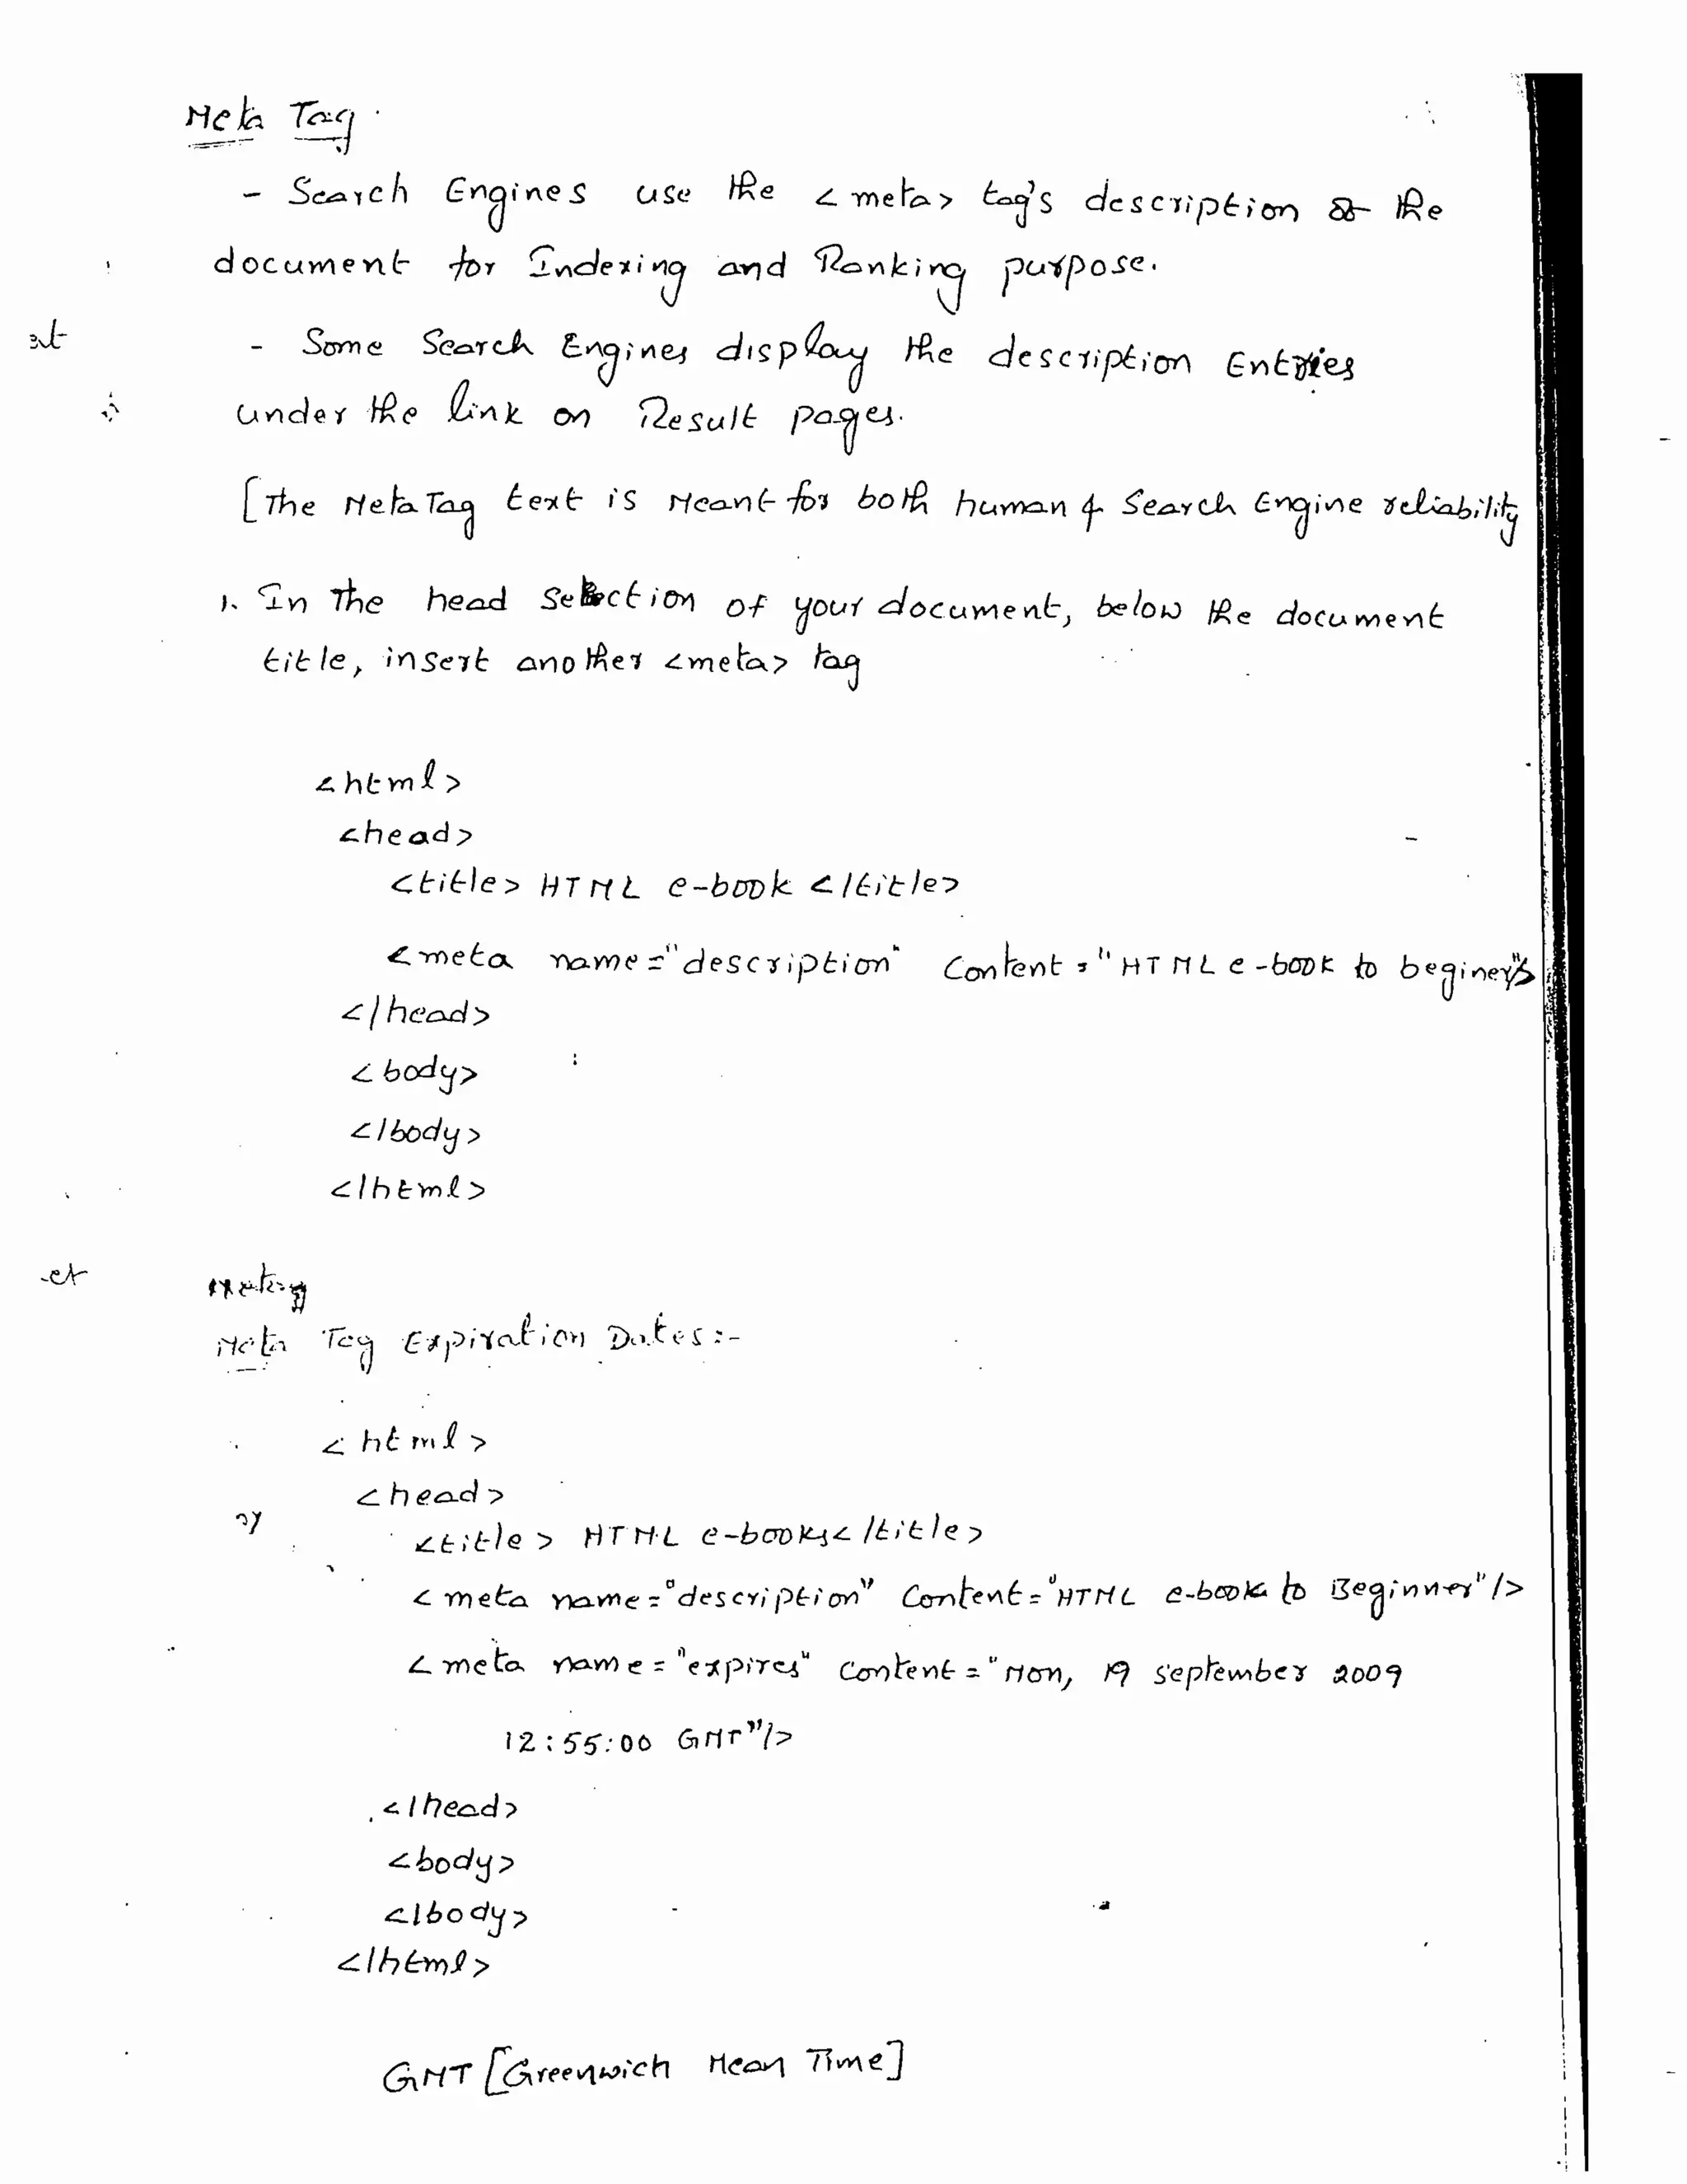 Meta Tag
- Search Engines use the <meta> tag's description the
document for Indexing and Ranking purpose.
- Some Search Engines display the description Entries
under the link on Result pages.
[The Meta Tag text is Meant for both human & Search Engine reliability
1. In The head section of your document, below the document
title, insert another <meta> tag
<html>
<head>
<title> HTML e-book </title>
<meta name="description" Content="HTML e-book to beginers">
</head>
<body>
</body>
</html>
Meta Tag Expiration Dates:-
<html>
<head>
<title> HTML e-books</title>
<meta name="description" Content="HTML e-book to Beginner"/>
<meta name="expires" content="Mon, 19 september 2009
12:55:00 GMT"/>
</head>
<body>
</body>
</html>
GMT [Greenwich Mean Time]